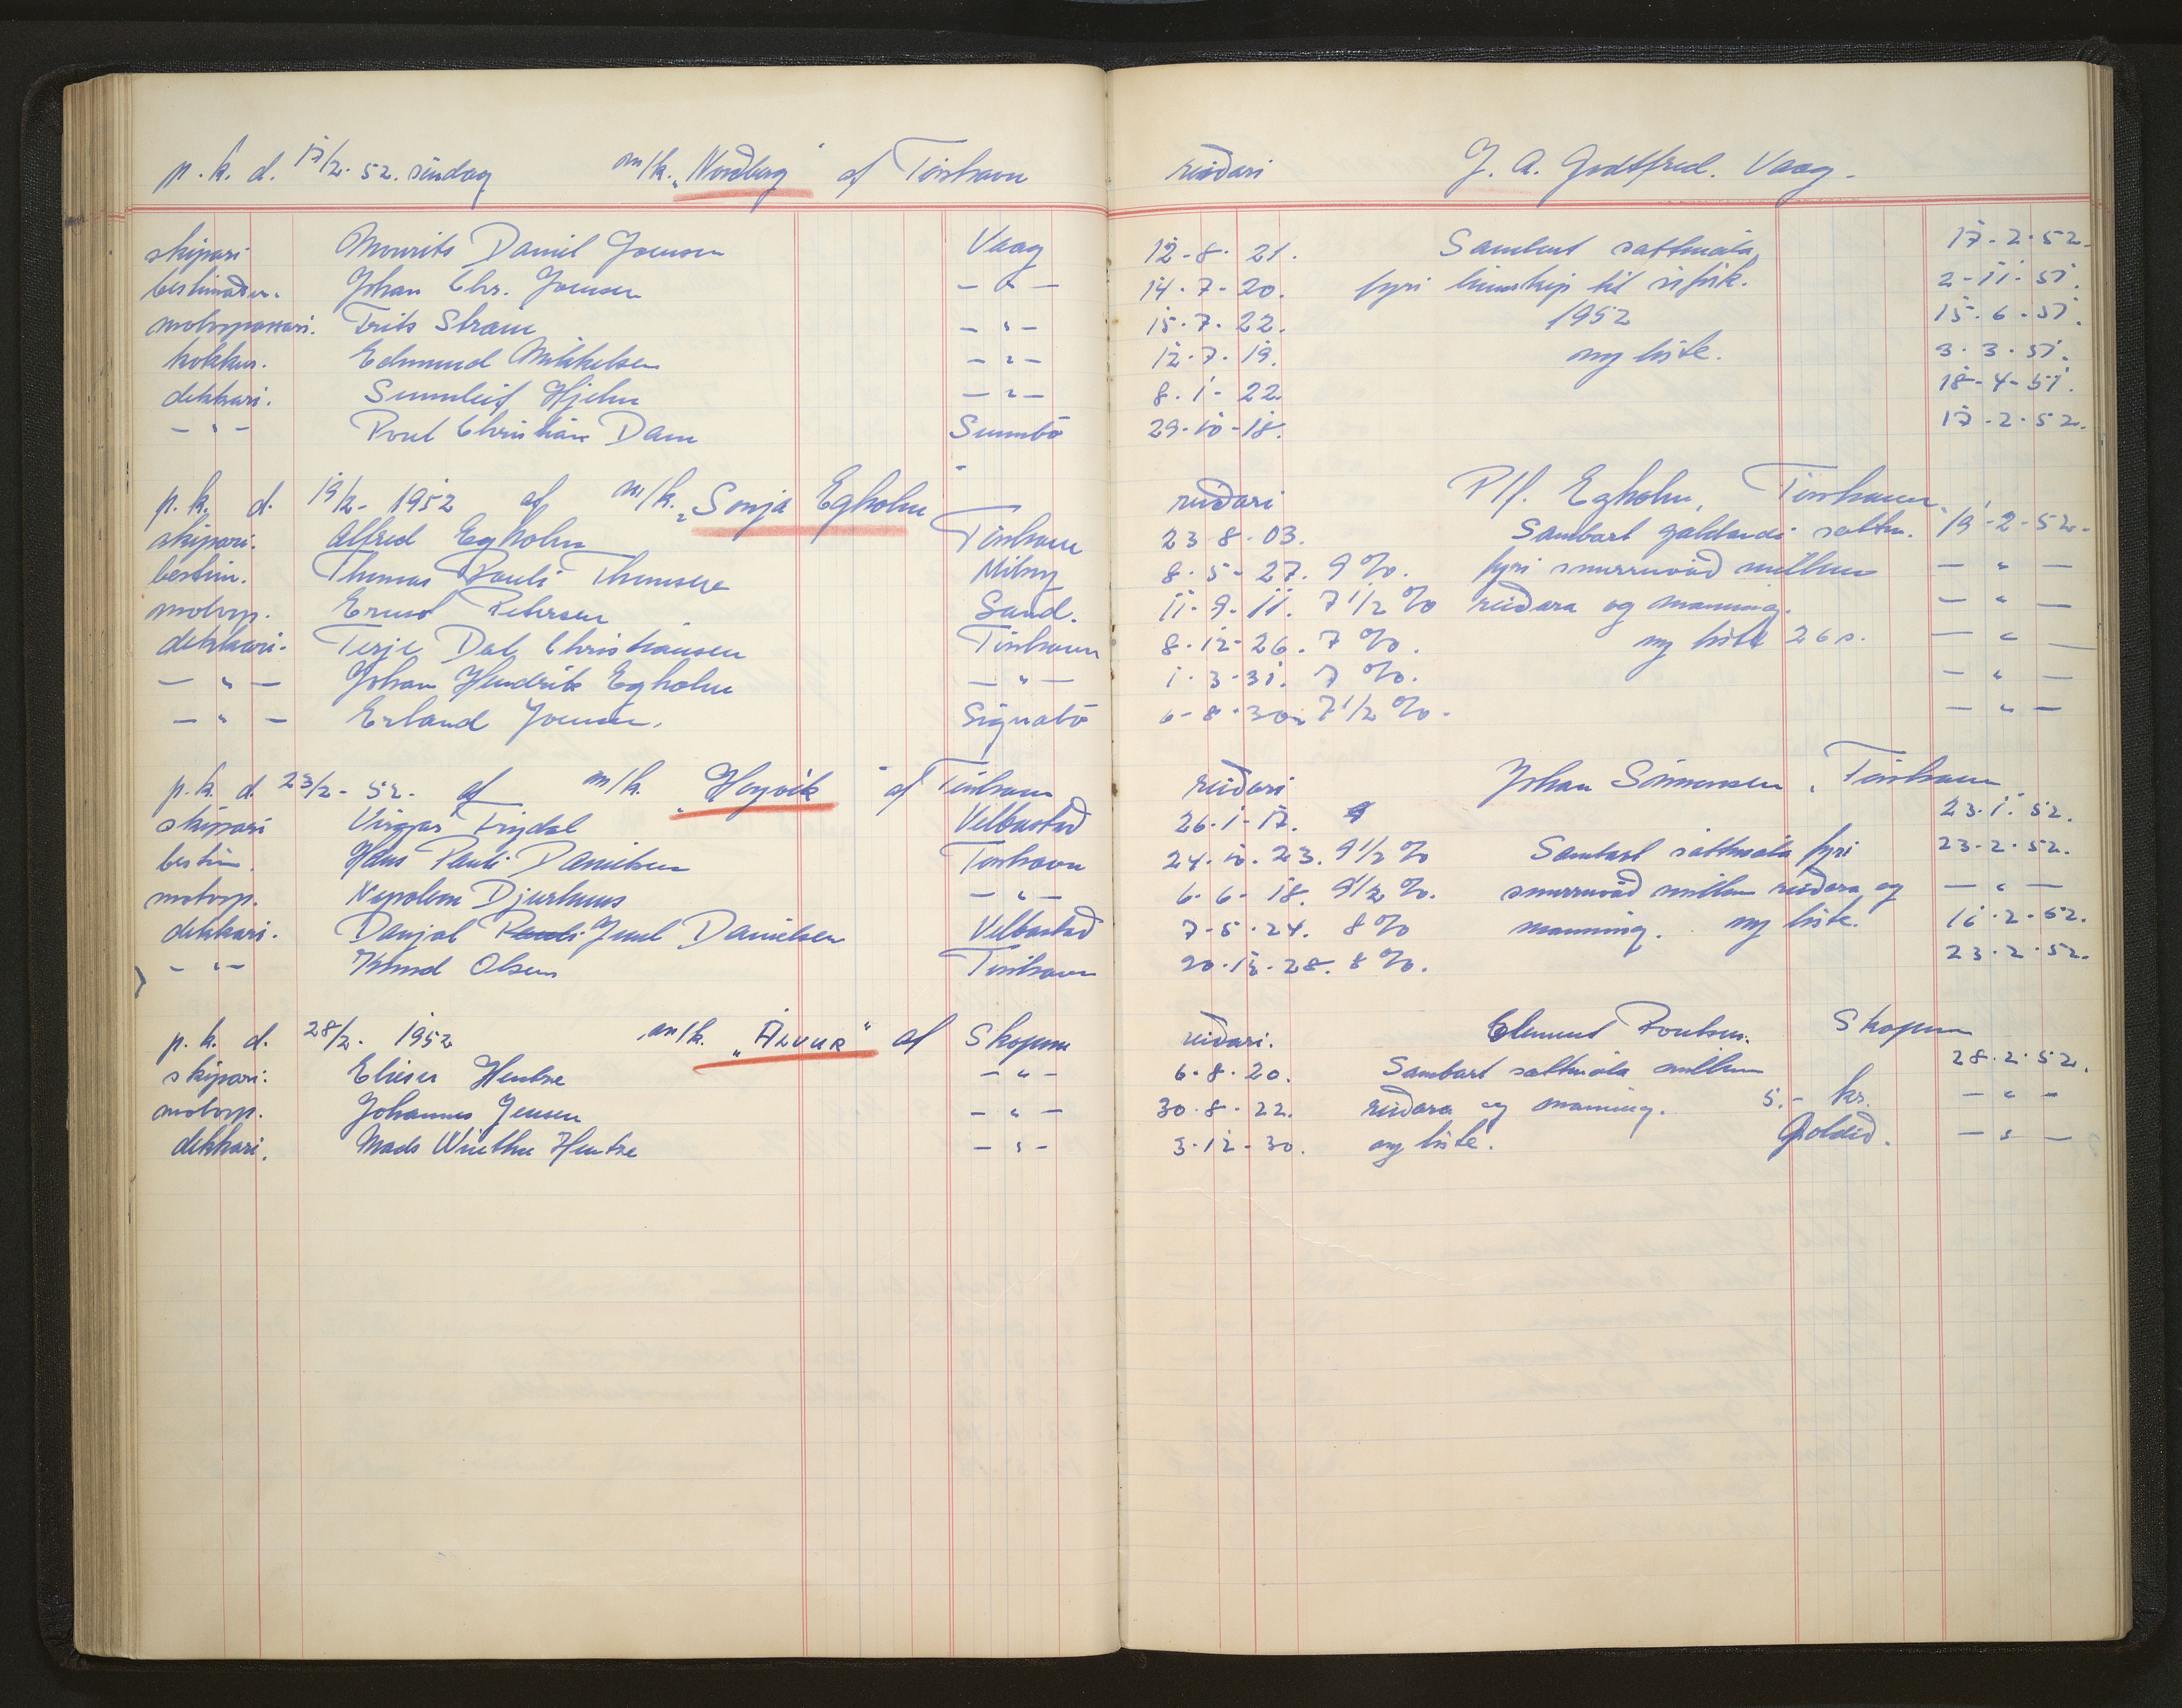 p. k. d. 17/2. 52. sündag m/k. „Nordberg" af Tórshavn reiðari J. A. Godtfred. Vaag.
skipari Mourits Daniel Joensen Vaag 12-8-21. Sambart sáttmála 17-2-52.
bestimaður. Johan Chr. Joensen — " — 14-7-20. fyri línuskip til ísfisk. 2-11-51.
motorpassari. Frits Strøm — " — 15-7-22. 1952 15-6-51.
kokkur. Edmund Mikkelsen — " — 12-7-19. ny liste. 3-3-51.
dekkari. Sunnleif Hjelm — " — 8-1-22. 18-4-51.
— " — Poul Christian Dam Sumbö 29-10-18. 17-2-52.
p. k. d. 19/2- 1952 af m/k. „Sonja Egholm" reiðari P/f. Egholm, Tórshavn.
skipari. Alfred Egholm Tórshavn 23-8-03. Sambart galdandi sáttm. 19-2-52.
bestim. Thomas Pauli Thomsen Miðvág 8-5-27. 9 %. fyri snurruváð millum — " —
motorp. Ernst Petersen Sand. 11-9-11. 7 1/2 % reiðara og manning. — " —
dekkari. Terje Dal Christiansen Tórshavn 8-12-26. 7 %. ny liste 26 s. — " —
— " — Johan Hendrik Egholm — " — 1-3-31. 7 %. — " —
— " — Erland Joensen. Signabö 6-8-30. 7 1/2 %. — " —
p. k. d. 23/2- 52. af m/k. „Hoyvík" af Tórshavn reiðari Johan Simonsen, Tórshavn
skipari Virgar Trydal Velbastað 26-1-17. 23-1-52.
bestim. Hans Pauli Danielsen Tórshavn 24-10-23. 9 1/2 % Sambart sáttmála fyri 23-2-52.
motorp. Napoleon Djurhuus — " — 6-6-18. 9 1/2 %. snurruváð millum reiðara og — " —
dekkari. Danjal Pauli Juul Danielsen Velbastað 7-5-24. 8 % manning. ny liste. 16-2-52.
— " — Knud Olsen Tórshavn 20-12-28. 8 %. 23-2-52.
p. k. d. 28/2. 1952 m/k. „ÁLVUR" af Skopun reiðari. Clement Poulsen. Skopun
skipari. Elieser Hentze — " — 6-8-20. Sambart sáttmála millum 28-2-52.
motorp. Johannes Jensen — " — 30-8-22. reiðara og manning. 5.- kr. — " —
dekkari. Mads Winther Hentze — " — 3-12-30. ny liste. Goldið. — " —